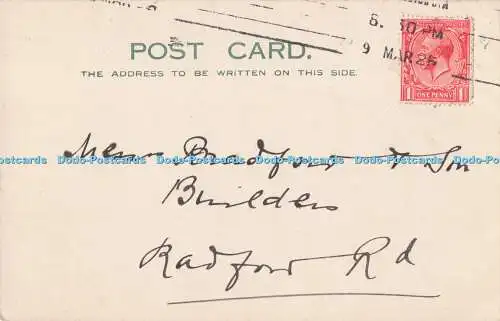 8. 30 PM
9 MAR 26
POST CARD.
THE ADDRESS TO BE WRITTEN ON THIS SIDE.
ONE PENNY
Messrs Bradford & Son
Dodo-Postcards Dodo-Postcards Dodo-Postcards Dodo-Postcards Dodo-Postcards
Builders
Radford Rd